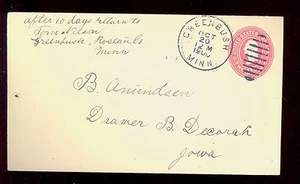 after 10 days return to
Tom Nelson
Greenbush, Roseau Co
Minn
GREENBUSH
OCT
20
M
MINN.
B. Anundsen
Drawer B. Decorah
Iowa